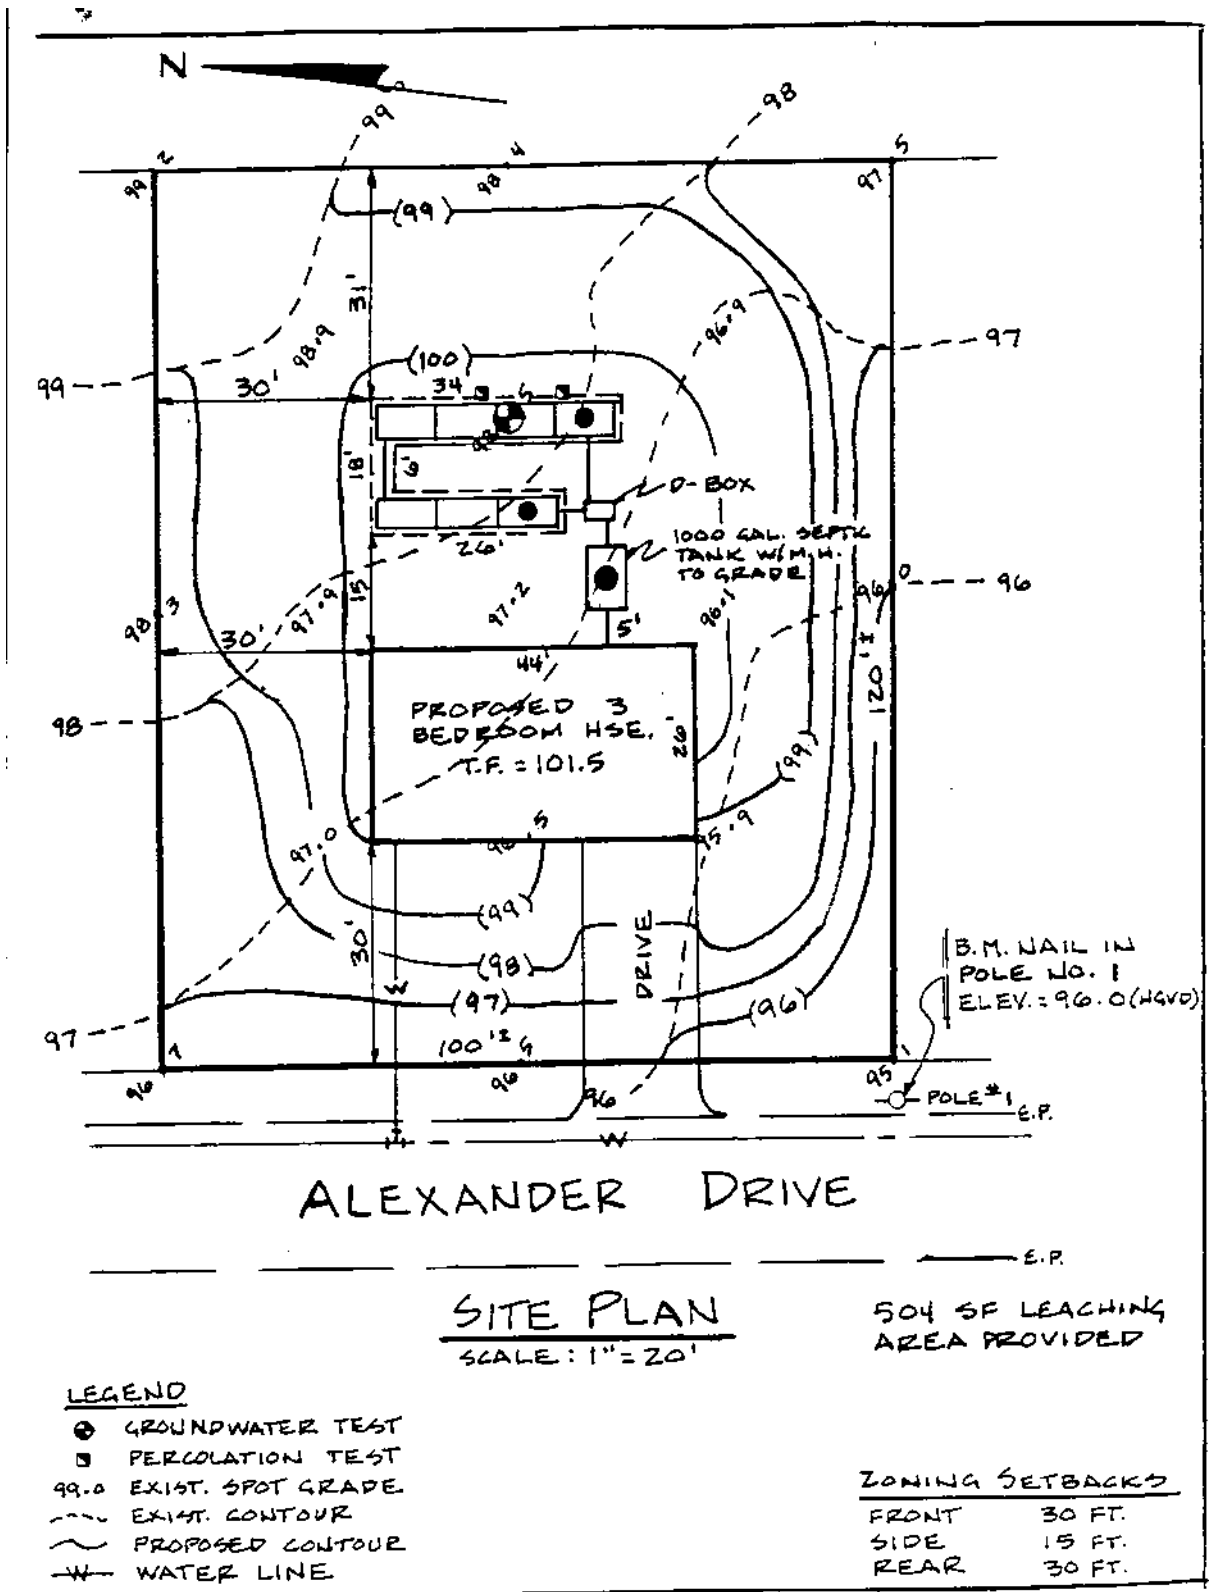 N
99
98
99.2
98.4
97.5
(99)
31'
98.9
96.9
97
99
30'
(100)
34
18'
6'
D-BOX
26'
1000 GAL. SEPTIC
TANK W/M.H.
TO GRADE
15
97.9
97.2
96.1
96.0
96
98.3
30'
5'
44'
120'±
98
PROPOSED 3
BEDROOM HSE.
T.F. = 101.5
26'
(99)
97.0
96.5
95.9
(99)
30'
DRIVE
(98)
W
(97)
(96)
B.M. NAIL IN
POLE NO. 1
ELEV. = 96.0 (NGVD)
97
100'±
96.7
96.5
95.1
96
POLE #1
E.P.
W
ALEXANDER DRIVE
E.P.
SITE PLAN
SCALE: 1" = 20'
504 SF LEACHING
AREA PROVIDED
LEGEND
GROUNDWATER TEST
PERCOLATION TEST
99.0 EXIST. SPOT GRADE
EXIST. CONTOUR
PROPOSED CONTOUR
W WATER LINE
ZONING SETBACKS
FRONT 30 FT.
SIDE 15 FT.
REAR 30 FT.